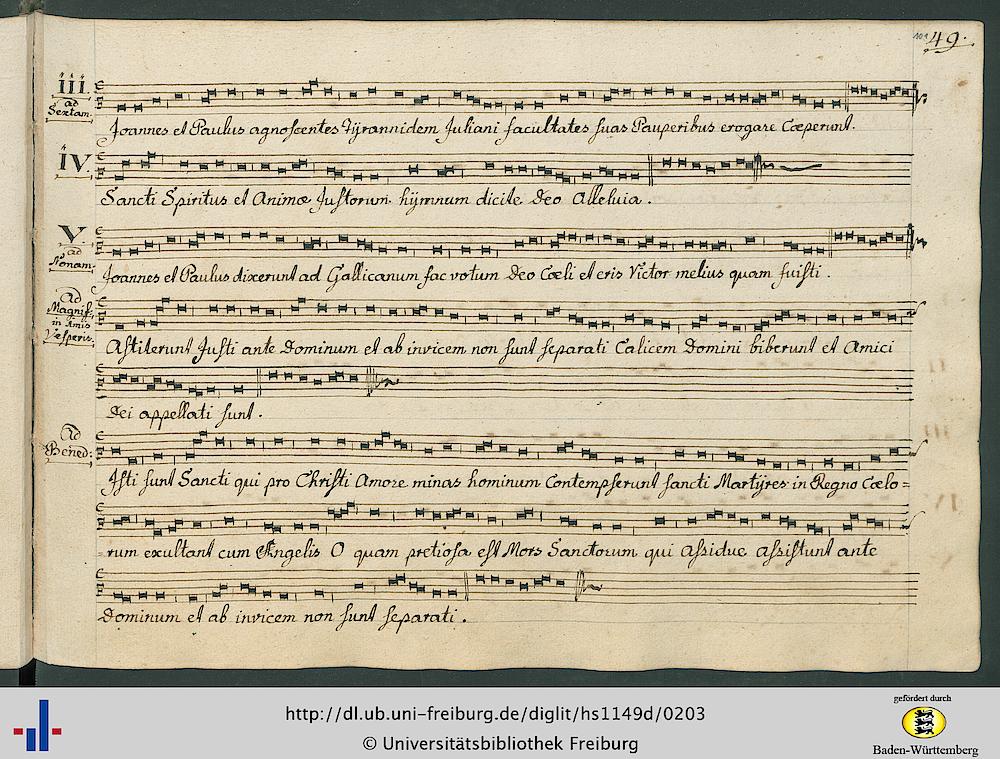 49.
III.
ad
Sextam.
Joannes et Paulus agnoscentes Tÿrannidem Juliani facultates suas Pauperibus erogare Cœperunt.
IV.
Sancti Spiritus et Animæ Justorum hÿmnum dicite Deo Alleluia.
V.
ad
Nonam.
Joannes et Paulus dixerunt ad Gallicanum fac votum Deo Cœli et eris Victor melius quam fuisti.
Ad
Magnif:
in
Vesperis.
Astiterunt Justi ante Dominum et ab invicem non sunt separati Calicem Domini biberunt et Amici
Dei appellati sunt.
Ad
Bened:
Isti sunt Sancti qui pro Christi Amore minas hominum Contempserunt sancti Martÿres in Regno Cœlo=
=rum exultant cum Angelis O quam pretiosa est Mors Sanctorum qui Assidue Assistunt ante
Dominum et ab invicem non sunt separati.
http://dl.ub.uni-freiburg.de/diglit/hs1149d/0203
© Universitätsbibliothek Freiburg
gefördert durch
Baden-Württemberg